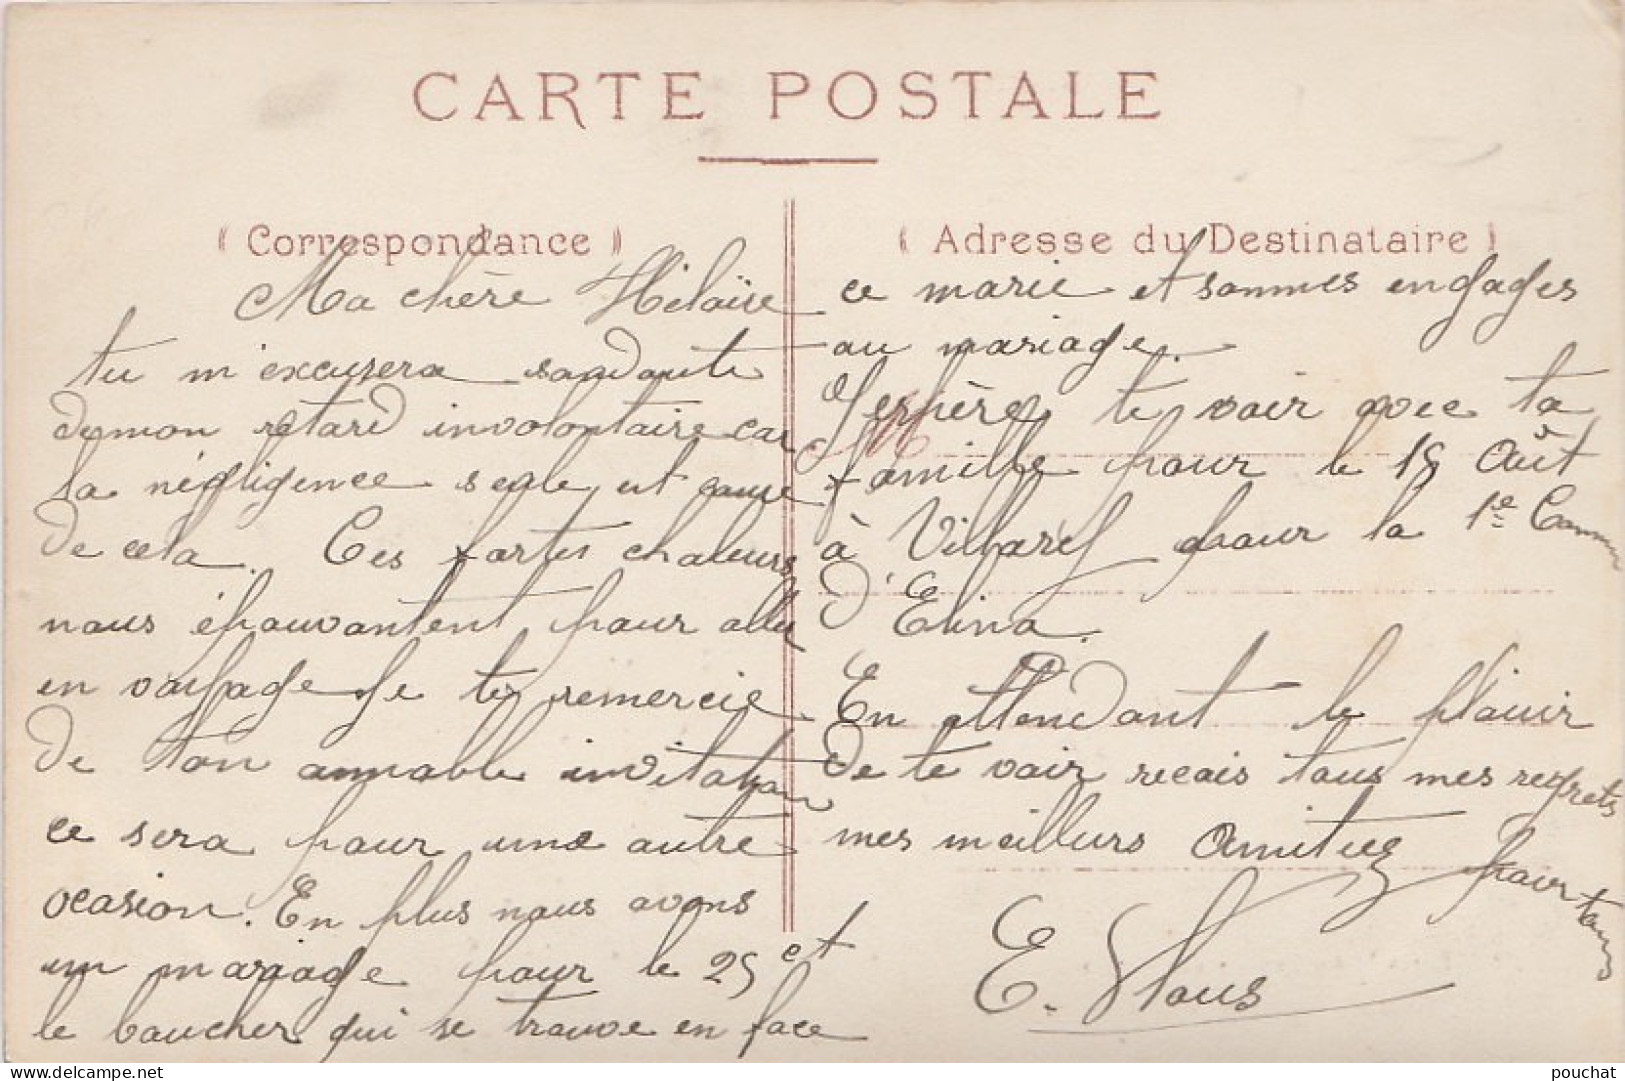 CARTE POSTALE
Correspondance
Ma chère Héloïse
tu m'excusera sandoute
demon retard involontaire car
la négligence seule est cause
de cela. Ces fortes chaleurs
nous épouvantent pour aller
en voyage Je te remercie
de ton annable invitation
ce sera pour une autre
ocasion. En plus nous avons
un mariage pour le 25 et
le boucher qui se trouve en face
Adresse du Destinataire
ce marie et sommes engages
au mariage.
J'espère te voir avec ta
famille pour le 15 Août
à Villarel pour la 1e Commun
d'Elina.
En attendant le plaisir
de te voir recois tous mes regrets
mes meillurs amitiez pour tous
E.
pouchat